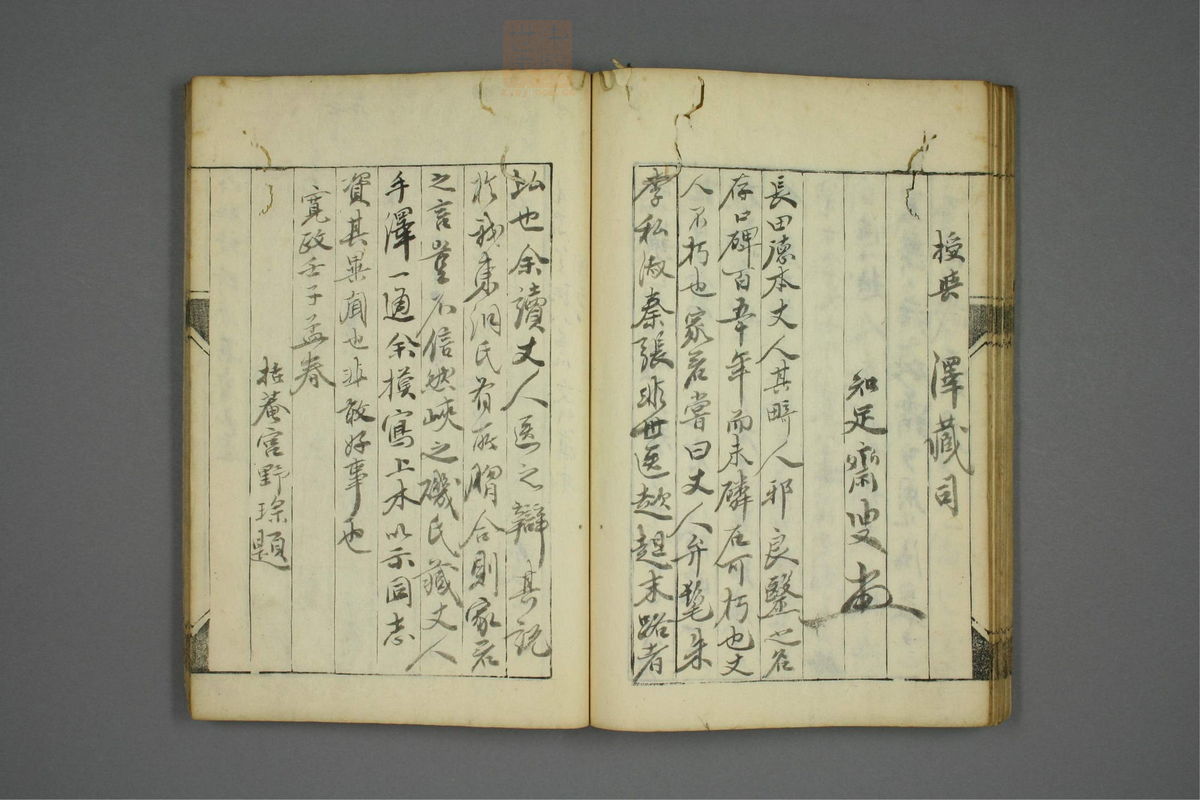 授与 澤藏司
知足齋叟
長田德本丈人其畸人邪良醫之名
存口碑百五年而未磷庄可朽也丈
人不朽也家君嘗曰丈人弁髦朱
李私淑秦張非世医趑趄末路者
比也余讀丈人医之辯其說
於我東洞氏有所脗合則家君
之言豈不信然峽之磯氏藏丈人
手澤一通余摸寫上木以示同志
資其異聞也非敢好事也
寛政壬子孟春
括菴宮野琮題